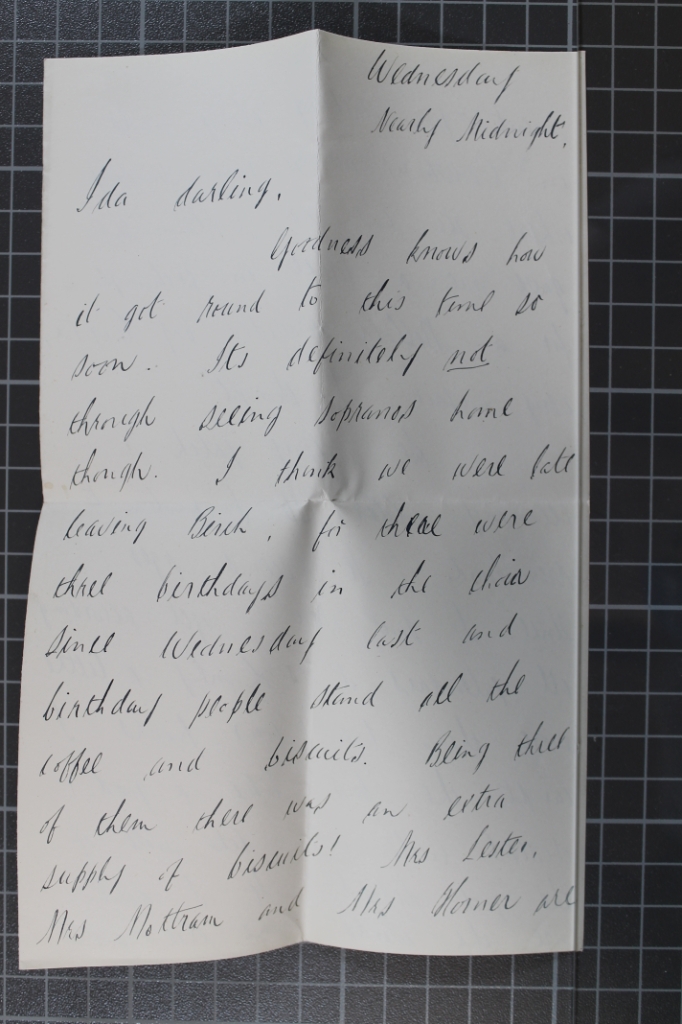 Wednesday
Nearly Midnight,
Ida darling,
Goodness knows how
it got round to this time so
soon. Its definitely not
through seeing sopranos home
though. I think we were late
leaving Birch, for there were
three birthdays in the choir
since Wednesday last and
birthday people stand all the
coffee and biscuits. Being three
of them there was an extra
supply of biscuits! Mrs Lester,
Mrs Mottram and Mrs Horner are